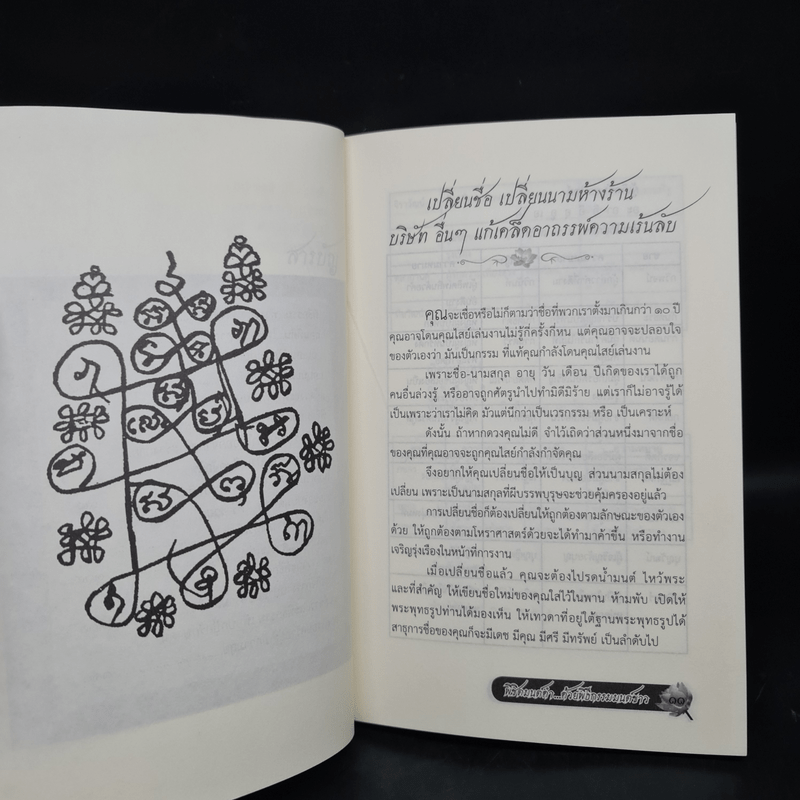 เปลี่ยนชื่อ เปลี่ยนนามห้างร้าน
บริษัท อื่นๆ แก้เคล็ดอาถรรพ์ความเร้นลับ
คุณจะเชื่อหรือไม่ก็ตามว่าชื่อที่พวกเราตั้งมาเกินกว่า ๑๐ ปี
คุณอาจโดนคุณไสย์เล่นงานไม่รู้กี่ครั้งกี่หน แต่คุณอาจจะปลอบใจ
ของตัวเองว่า มันเป็นกรรม ที่แท้คุณกำลังโดนคุณไสย์เล่นงาน
เพราะชื่อ-นามสกุล อายุ วัน เดือน ปีเกิดของเราได้ถูก
คนอื่นล่วงรู้ หรืออาจถูกศัตรูนำไปทำมิดีมิร้าย แต่เราก็ไม่อาจรู้ได้
เป็นเพราะว่าเราไม่คิด มัวแต่นึกว่าเป็นเวรกรรม หรือ เป็นเคราะห์
ดังนั้น ถ้าหากดวงคุณไม่ดี จำไว้เถิดว่าส่วนหนึ่งมาจากชื่อ
ของคุณที่คุณอาจจะถูกคุณไสย์กำลังกำจัดคุณ
จึงอยากให้คุณเปลี่ยนชื่อให้เป็นบุญ ส่วนนามสกุลไม่ต้อง
เปลี่ยน เพราะเป็นนามสกุลที่ผีบรรพบุรุษจะช่วยคุ้มครองอยู่แล้ว
การเปลี่ยนชื่อก็ต้องเปลี่ยนให้ถูกต้องตามลักษณะของตัวเอง
ด้วย ให้ถูกต้องตามโหราศาสตร์ด้วยจะได้ทำมาค้าขึ้น หรือทำงาน
เจริญรุ่งเรืองในหน้าที่การงาน
เมื่อเปลี่ยนชื่อแล้ว คุณจะต้องไปรดน้ำมนต์ ไหว้พระ
และที่สำคัญ ให้เขียนชื่อใหม่ของคุณใส่ไว้ในพาน ห้ามพับ เปิดให้
พระพุทธรูปท่านได้มองเห็น ให้เทวดาที่อยู่ใต้ฐานพระพุทธรูปได้
สาธุการชื่อของคุณก็จะมีเดช มีคุณ มีศรี มีทรัพย์ เป็นลำดับไป